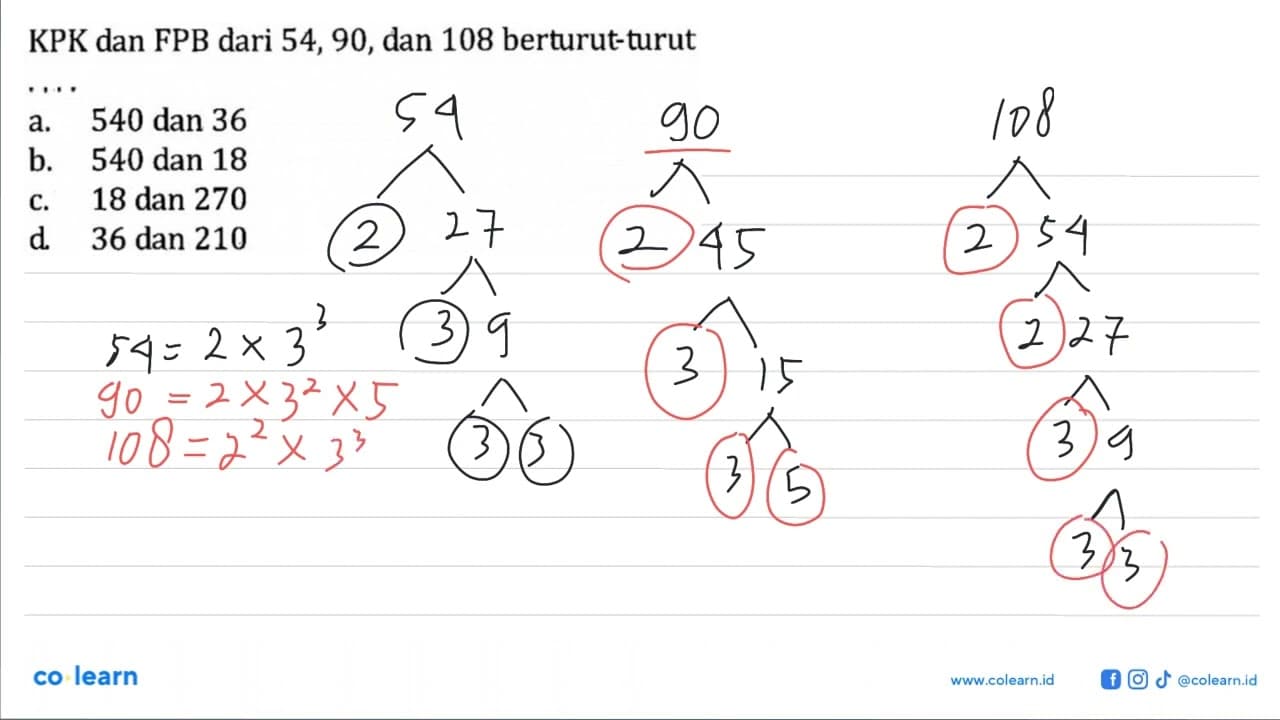 KPK dan FPB dari 54, 90, dan 108 berturut-turut
....
a. 540 dan 36
b. 540 dan 18
c. 18 dan 270
d. 36 dan 210
54
2 27
3 9
3 3
90
2 45
3 15
3 5
108
2 54
2 27
3 9
3 3
54 = 2 × 3³
90 = 2 × 3² × 5
108 = 2² × 3³
co learn
www.colearn.id
@colearn.id